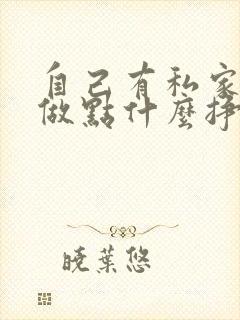 自己有私家
做點什麼掙
曉葉悠